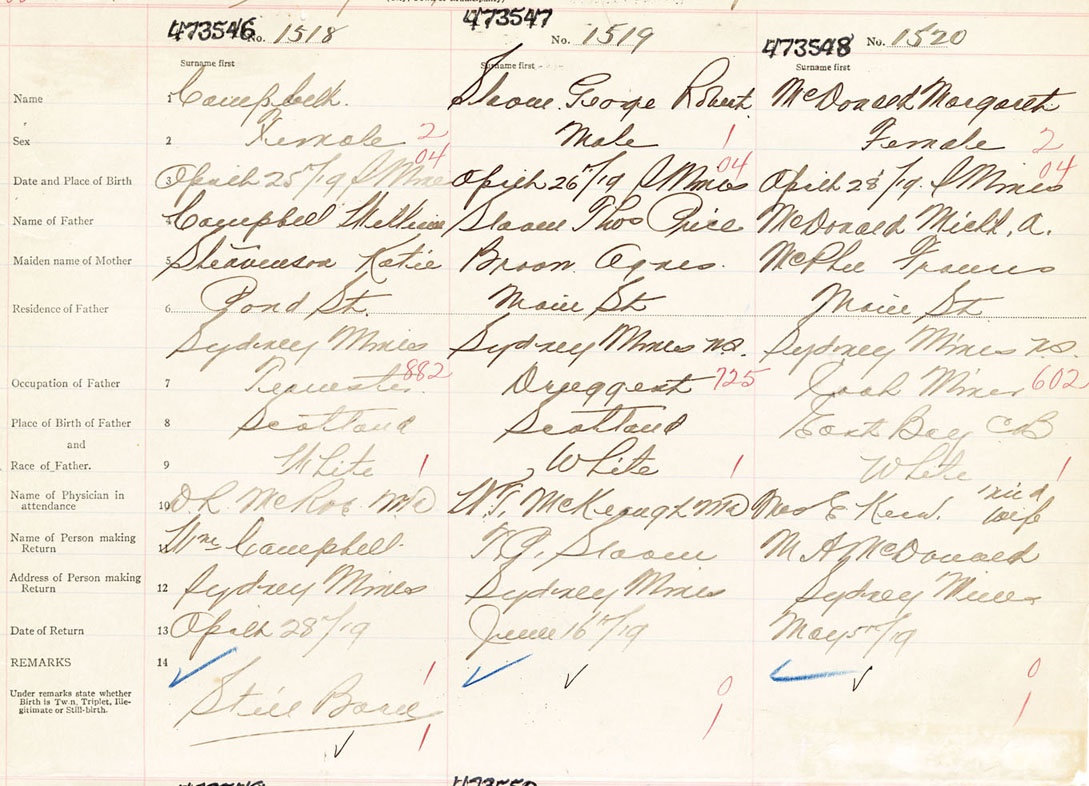 473546 No. 1518 473547 No. 1519 473548 No. 1520
Surname first Surname first Surname first
Name 1 Campbell. Sloan George Robert. McDonald Margaret
Sex 2 Female 2 Male 1 Female 2
04 04 04
Date and Place of Birth 3 April 25th/19 S Mines April 26th/19 S Mines April 28/19. S Mines
Name of Father 4 Campbell William Sloan Thos Price McDonald Michl. A.
Maiden name of Mother 5 Steavenson Katie Broon Agnes. McPhee Frances
Residence of Father 6 Pond St. Main St Main St
Sydney Mines Sydney Mines n.s. Sydney Mines n.s.
Occupation of Father 7 Teamster 882 Druggest 725 Coal Miner 602
Place of Birth of Father 8 Scotland Scotland East Bay C.B
and
Race of Father. 9 White 1 White 1 White 1
Name of Physician in
attendance 10 D.R. McRae MD W.T. McKeough MD Mrs E mid wife
Name of Person making
Return 11 Wm Campbell. T.P. Sloan M A McDonald
Address of Person making
Return 12 Sydney Mines Sydney Mines Sydney Mines
Date of Return 13 April 28th/19 June 16th/19 May 5th/19
REMARKS 14 1 0 0
Under remarks state whether
Birth is Twin, Triplet, Ille-
gitimate or Still-birth. Still Born 1 1
1